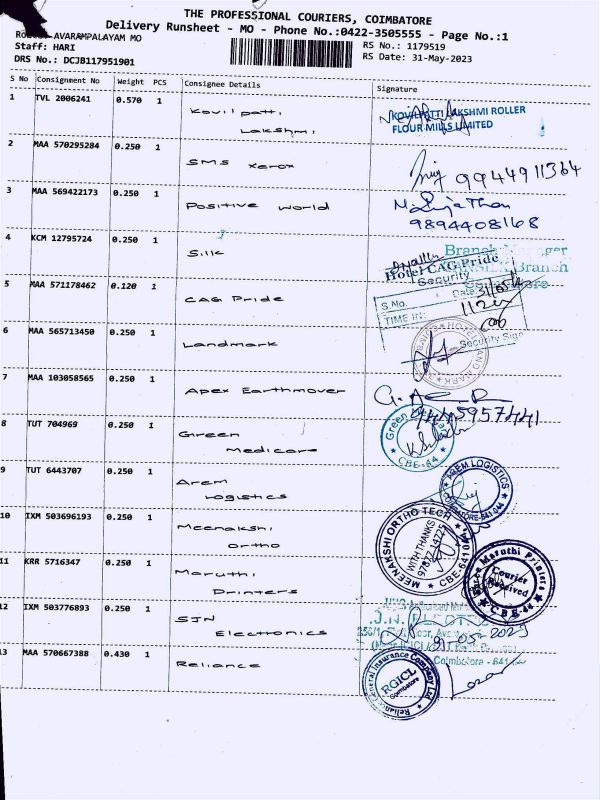 THE PROFESSIONAL COURIERS, COIMBATORE
Delivery Runsheet - MO - Phone No.:0422-3505555 - Page No.:1
AVARAMPALAYAM MO
Staff: HARI
DRS No.: DCJB117951901
RS No.: 1179519
RS Date: 31-May-2023
S No Consignment No Weight PCS Consignee Details Signature
1 TVL 2006241 0.570 1 Kovilpatti Lakshmi
KOVILPATTI LAKSHMI ROLLER
FLOUR MILLS LIMITED
2 MAA 570295284 0.250 1 SMS Xerox
9944911364
3 MAA 569422173 0.250 1 Positive World
M. Sujathan
9894408168
4 KCM 12795724 0.250 1 Silk
Branch Manager
Branch
5 MAA 571178462 0.120 1 CAG Pride
Hotel CAG Pride
Security
S.No. Date
TIME IN:
Security Sign
6 MAA 565713450 0.250 1 Landmark
HOTEL LANDMARK
7 MAA 103058565 0.250 1 Apex Earthmover
9445957441
8 TUT 704969 0.250 1 Green Medicare
Green Medicare
CBE-44
9 TUT 6443707 0.250 1 Arem Logistics
AREM LOGISTICS
COIMBATORE-641 044
10 IXM 503696193 0.250 1 Meenakshi Ortho
MEENAKSHI ORTHO TECH
WITH THANKS
CBE-641
11 KRR 5716347 0.250 1 Maruthi Printers
Maruthi Printers
Courier
Received
CBE-44
12 IXM 503776893 0.250 1 SJN Electronics
Coimbatore - 641
13 MAA 570667388 0.430 1 Reliance
Reliance General Insurance Company Ltd
RGICL
Coimbatore